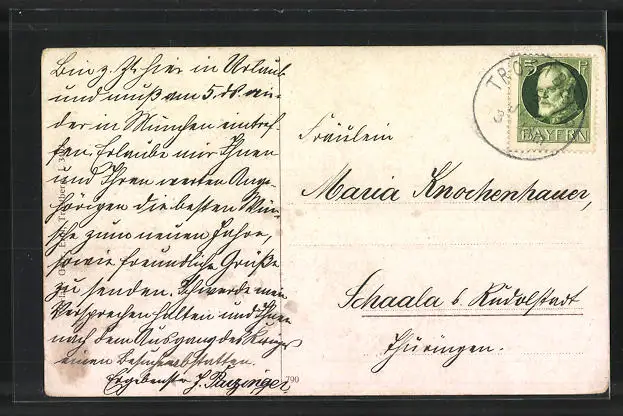 Bin z. Zt. hier in Urlaub
und muß am 5. ds. wie-
der in München eintref-
fen. Erlaube mir Ihnen
und Ihren werten Ange-
hörigen die besten Wün-
sche zum neuen Jahre,
sowie freundliche Grüße
zu senden. Ich werde mein
Versprechen halten und Ihnen
nach dem Ausgang des Krieges
einen Besuch abstatten.
Ergebenst J.
790
TRO
5 Pf
BAYERN
Fräulein
Maria Knochenhauer,
Schaala b. Rudolstadt
Thüringen.